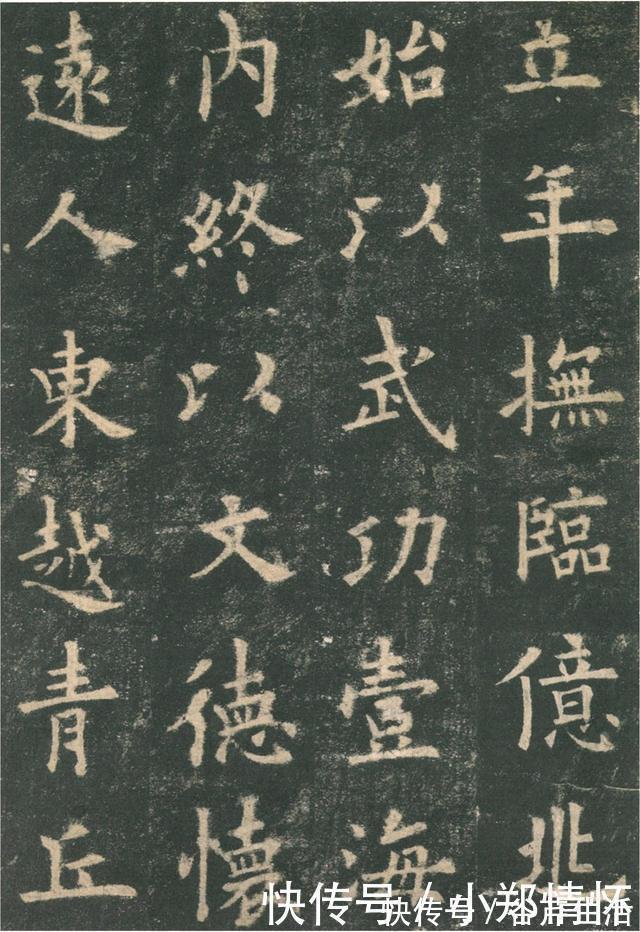 立年撫臨億兆
始以武功壹海
内終以文德懷
遠人東越青丘
快传号 / 小郑情怀
快传号 /